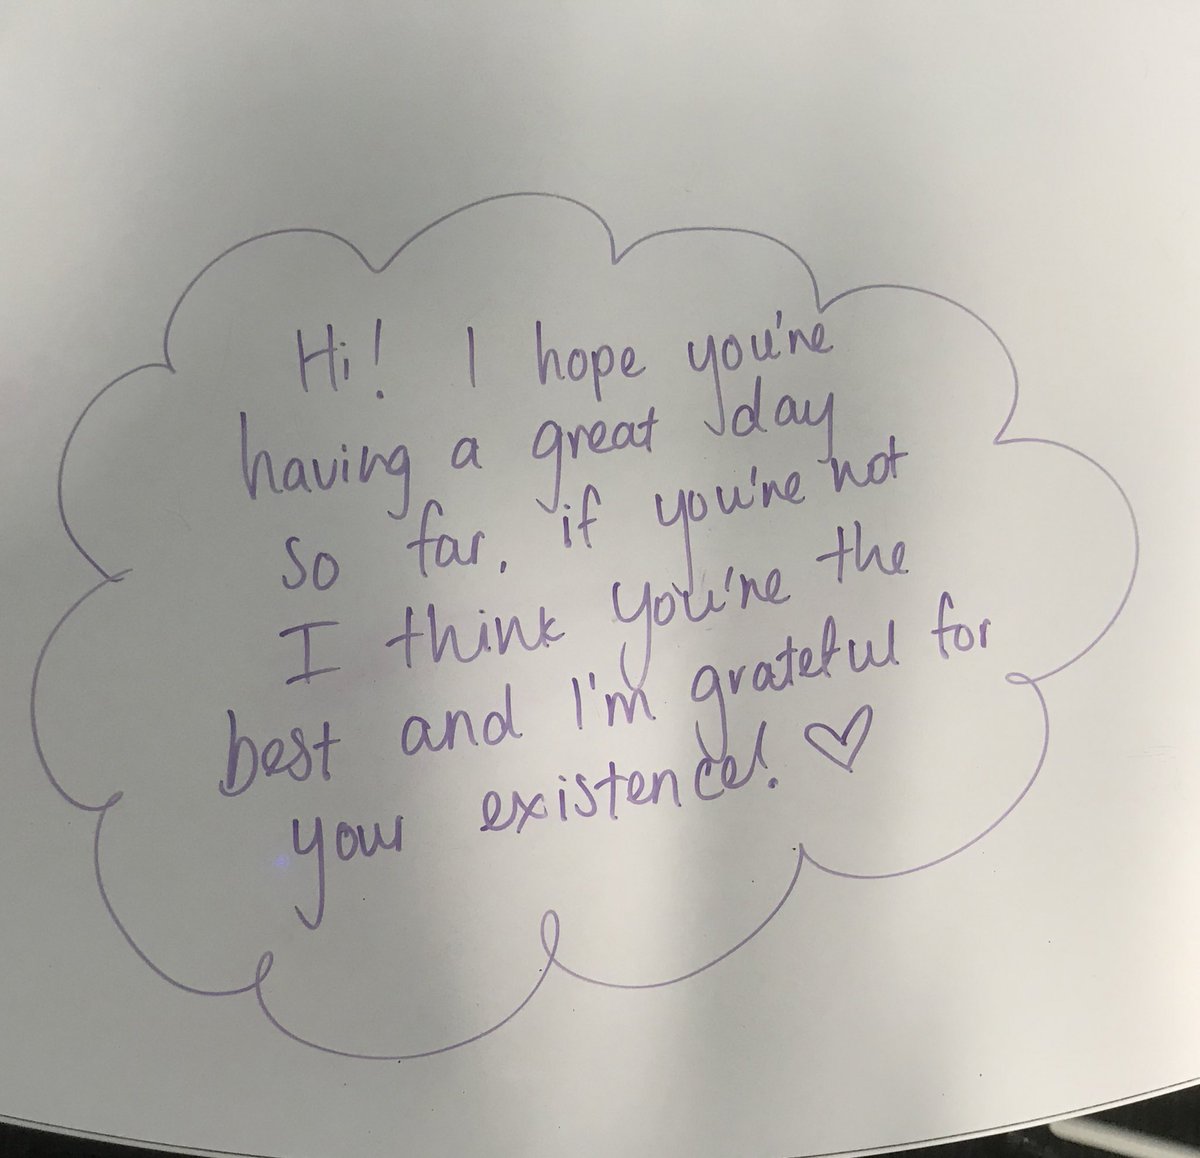 Hi! I hope you're
having a great day
so far, if you're not
I think you're the
best and I'm grateful for
your existence! ♡